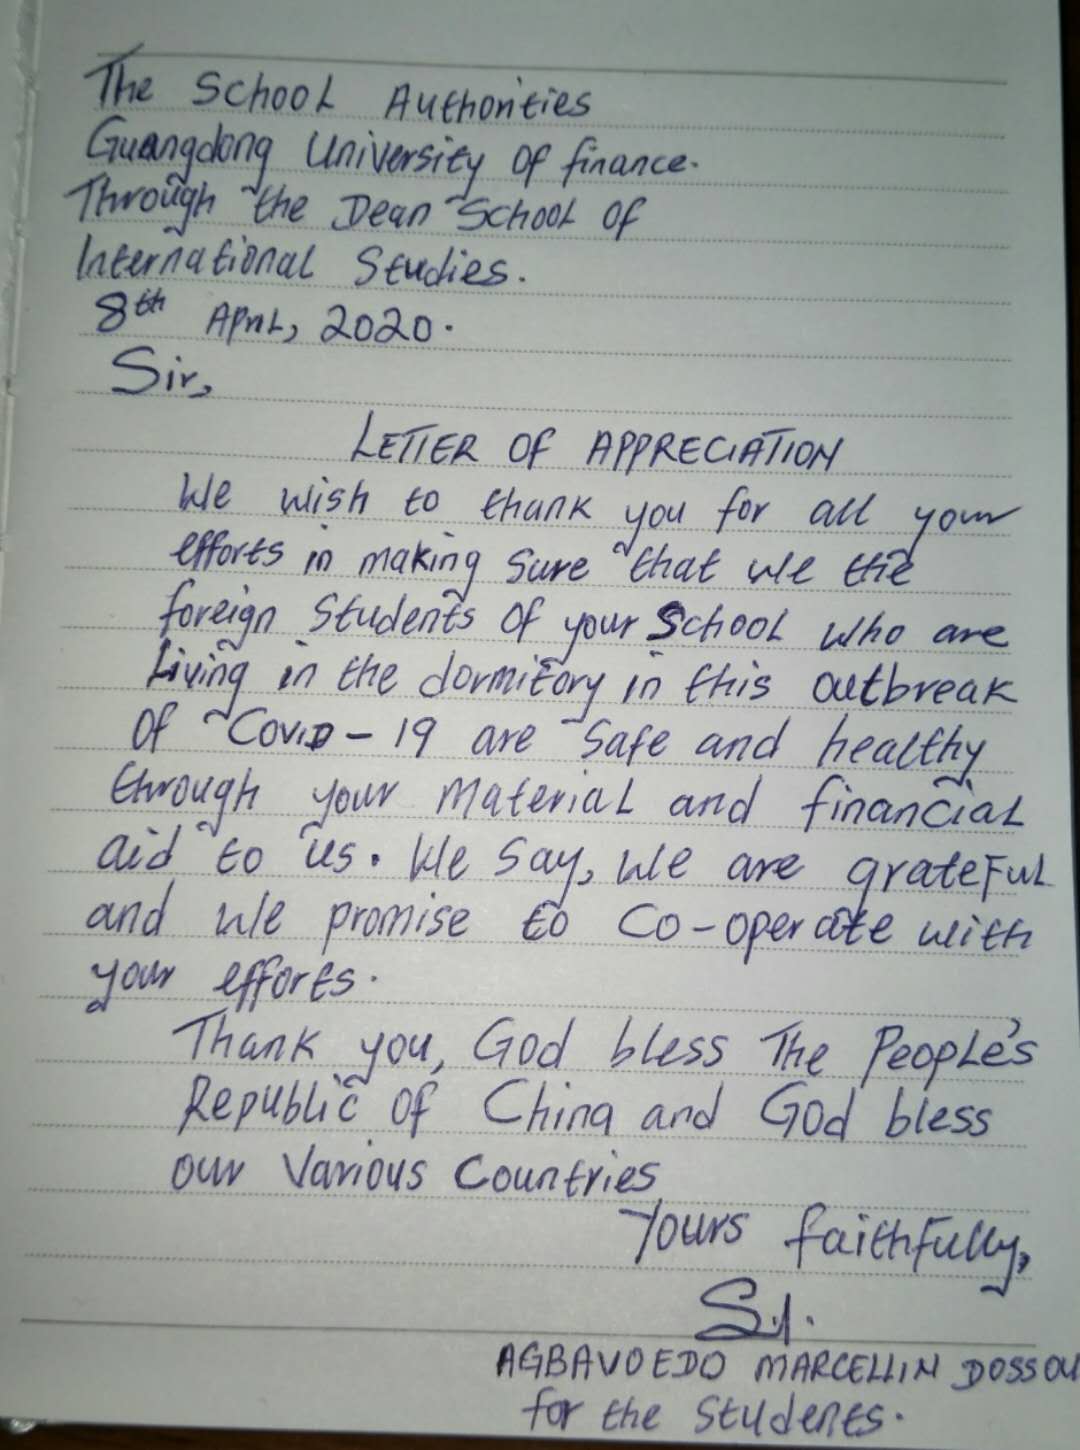 The School Authorities
Guangdong University of finance.
Through the Dean School of
International Studies.
8th April, 2020.
Sir,
LETTER OF APPRECIATION
We wish to thank you for all your
efforts in making sure that we the
foreign students of your school who are
living in the dormitory in this outbreak
of Covid-19 are safe and healthy
through your material and financial
aid to us. We say, we are grateful
and we promise to co-operate with
your efforts.
Thank you, God bless The People's
Republic of China and God bless
our various countries
Yours faithfully,
AGBAVOEDO MARCELLIN DOSSOU
for the students.